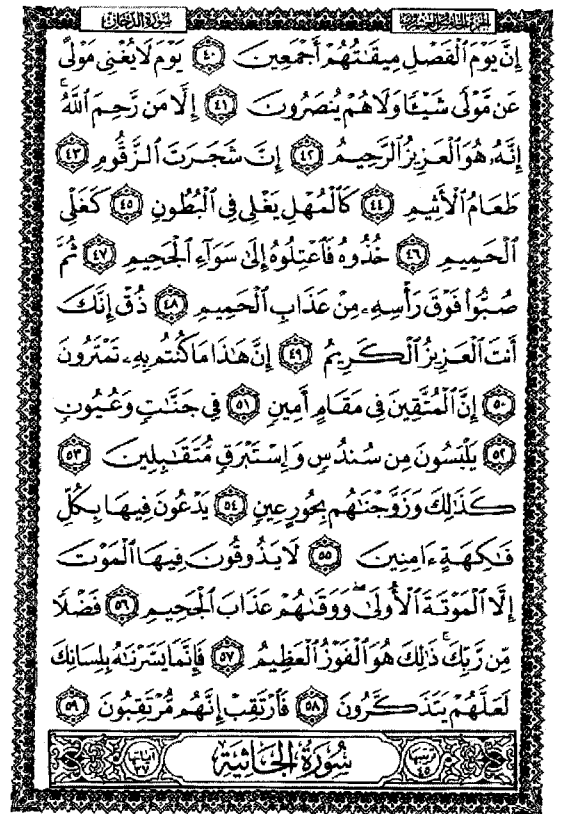 الجزء الخامس والعشرون سُورَةُ الدُّخَانِ
إِنَّ يَوْمَ ٱلْفَصْلِ مِيقَٰتُهُمْ أَجْمَعِينَ ٤٠ يَوْمَ لَا يُغْنِى مَوْلًى
عَن مَّوْلًى شَيْـًٔا وَلَا هُمْ يُنصَرُونَ ٤١ إِلَّا مَن رَّحِمَ ٱللَّهُۚ
إِنَّهُۥ هُوَ ٱلْعَزِيزُ ٱلرَّحِيمُ ٤٢ إِنَّ شَجَرَتَ ٱلزَّقُّومِ ٤٣
طَعَامُ ٱلْأَثِيمِ ٤٤ كَٱلْمُهْلِ يَغْلِى فِى ٱلْبُطُونِ ٤٥ كَغَلْىِ
ٱلْحَمِيمِ ٤٦ خُذُوهُ فَٱعْتِلُوهُ إِلَىٰ سَوَآءِ ٱلْجَحِيمِ ٤٧ ثُمَّ
صُبُّوا۟ فَوْقَ رَأْسِهِۦ مِنْ عَذَابِ ٱلْحَمِيمِ ٤٨ ذُقْ إِنَّكَ
أَنتَ ٱلْعَزِيزُ ٱلْكَرِيمُ ٤٩ إِنَّ هَٰذَا مَا كُنتُم بِهِۦ تَمْتَرُونَ
٥٠ إِنَّ ٱلْمُتَّقِينَ فِى مَقَامٍ أَمِينٍ ٥١ فِى جَنَّٰتٍ وَعُيُونٍ
٥٢ يَلْبَسُونَ مِن سُندُسٍ وَإِسْتَبْرَقٍ مُّتَقَٰبِلِينَ ٥٣
كَذَٰلِكَ وَزَوَّجْنَٰهُم بِحُورٍ عِينٍ ٥٤ يَدْعُونَ فِيهَا بِكُلِّ
فَٰكِهَةٍ ءَامِنِينَ ٥٥ لَا يَذُوقُونَ فِيهَا ٱلْمَوْتَ
إِلَّا ٱلْمَوْتَةَ ٱلْأُولَىٰۖ وَوَقَىٰهُمْ عَذَابَ ٱلْجَحِيمِ ٥٦ فَضْلًا
مِّن رَّبِّكَۚ ذَٰلِكَ هُوَ ٱلْفَوْزُ ٱلْعَظِيمُ ٥٧ فَإِنَّمَا يَسَّرْنَٰهُ بِلِسَانِكَ
لَعَلَّهُمْ يَتَذَكَّرُونَ ٥٨ فَٱرْتَقِبْ إِنَّهُم مُّرْتَقِبُونَ ٥٩
ترتيبها ٤٥ سُورَةُ الجَاثِيَةِ آياتها ٣٧